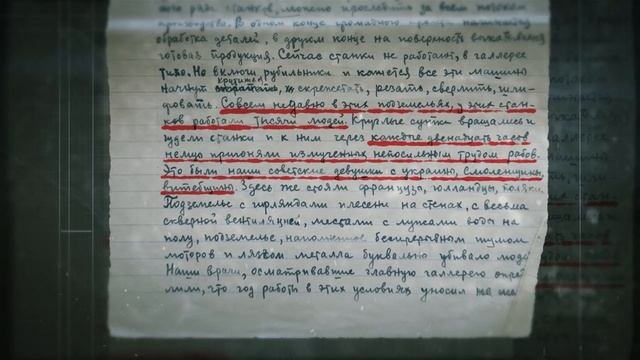 ряд станков, можно проследить за всем потоком
производства. В одном конце громадного
обработка деталей, в другом конце на поверхность
готовая продукция. Сейчас станки не работают, в галлерее
тихо. Но включи рубильники и кажется все эти машины
начнут крутиться, скрежетать, резать, сверлить, шли-
фовать. Совсем недавно в этих подземельях, у этих стан-
ков работали тысячи людей. Круглые сутки вращались и
гудели станки и к ним через каждые двенадцать часов
немцы пригоняли измученных непосильным трудом рабов.
Это были наши советские девушки с украины, смоленщины,
витебщины. Здесь же стояли французы, голландцы, поляки
Подземелье с гирляндами плесени на стенах, с весьма
скверной вентиляцией, местами с лужами воды на
полу, подземелье, наполненное беспрерывным шумом
моторов и лязгом металла буквально убивало люде
Наши врачи, осматривавшие главную галлерею опре
лили, что год работы в этих условиях уносил